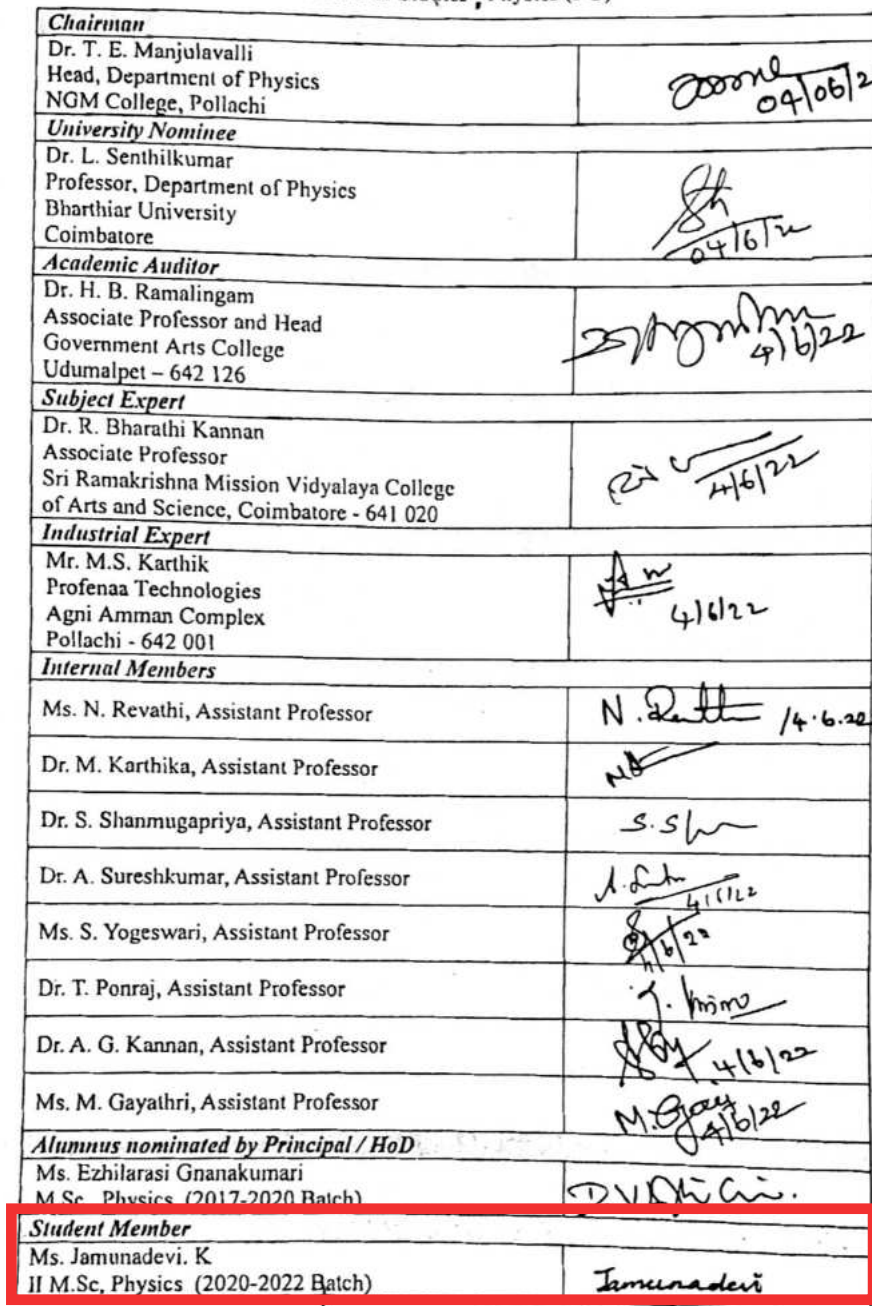 Physics
Chairman
Dr. T. E. Manjulavalli
Head, Department of Physics
NGM College, Pollachi
04/06/2
University Nominee
Dr. L. Senthilkumar
Professor, Department of Physics
Bharthiar University
Coimbatore
04/6/22
Academic Auditor
Dr. H. B. Ramalingam
Associate Professor and Head
Government Arts College
Udumalpet – 642 126
4/6/22
Subject Expert
Dr. R. Bharathi Kannan
Associate Professor
Sri Ramakrishna Mission Vidyalaya College
of Arts and Science, Coimbatore - 641 020
4/6/22
Industrial Expert
Mr. M.S. Karthik
Profenaa Technologies
Agni Amman Complex
Pollachi - 642 001
4/6/22
Internal Members
Ms. N. Revathi, Assistant Professor N. /4.6.22
Dr. M. Karthika, Assistant Professor
Dr. S. Shanmugapriya, Assistant Professor S.
Dr. A. Sureshkumar, Assistant Professor A. 4/6/22
Ms. S. Yogeswari, Assistant Professor
Dr. T. Ponraj, Assistant Professor
Dr. A. G. Kannan, Assistant Professor 4/6/22
Ms. M. Gayathri, Assistant Professor M. Gay 4/6/22
Alumnus nominated by Principal / HoD
Ms. Ezhilarasi Gnanakumari
M.Sc, Physics (2017-2020 Batch)
Student Member
Ms. Jamunadevi. K
II M.Sc, Physics (2020-2022 Batch) Jamunadevi